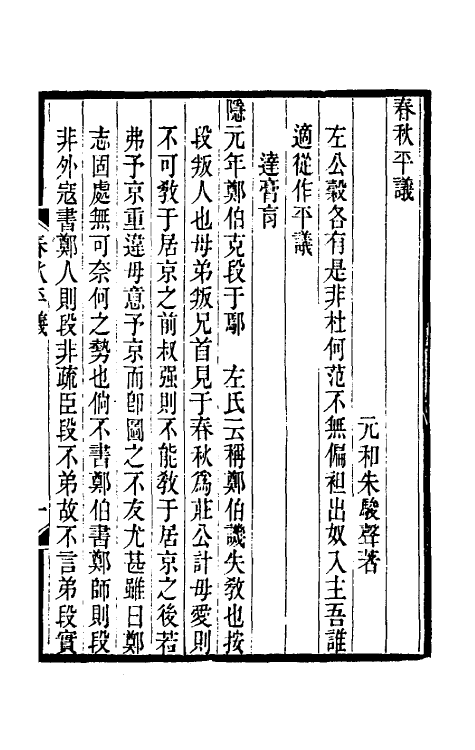 春秋平議
元和朱駿聲著
左公穀各有是非杜何范不無偏袒出奴入主吾誰
適從作平議
達膏肓
隱元年鄭伯克段于鄢　左氏云稱鄭伯譏失敎也按
段叛人也母弟叛兄首見于春秋爲莊公計母愛則
不可敎于居京之前叔强則不能敎于居京之後若
弗予京重違母意予京而卽圖之不友尤甚雖曰鄭
志固處無可奈何之勢也倘不書鄭伯書鄭師則段
非外寇書鄭人則段非疏臣段不弟故不言弟段實
春秋平議
一